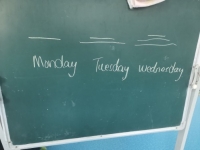 Monday Tuesday Wednesday